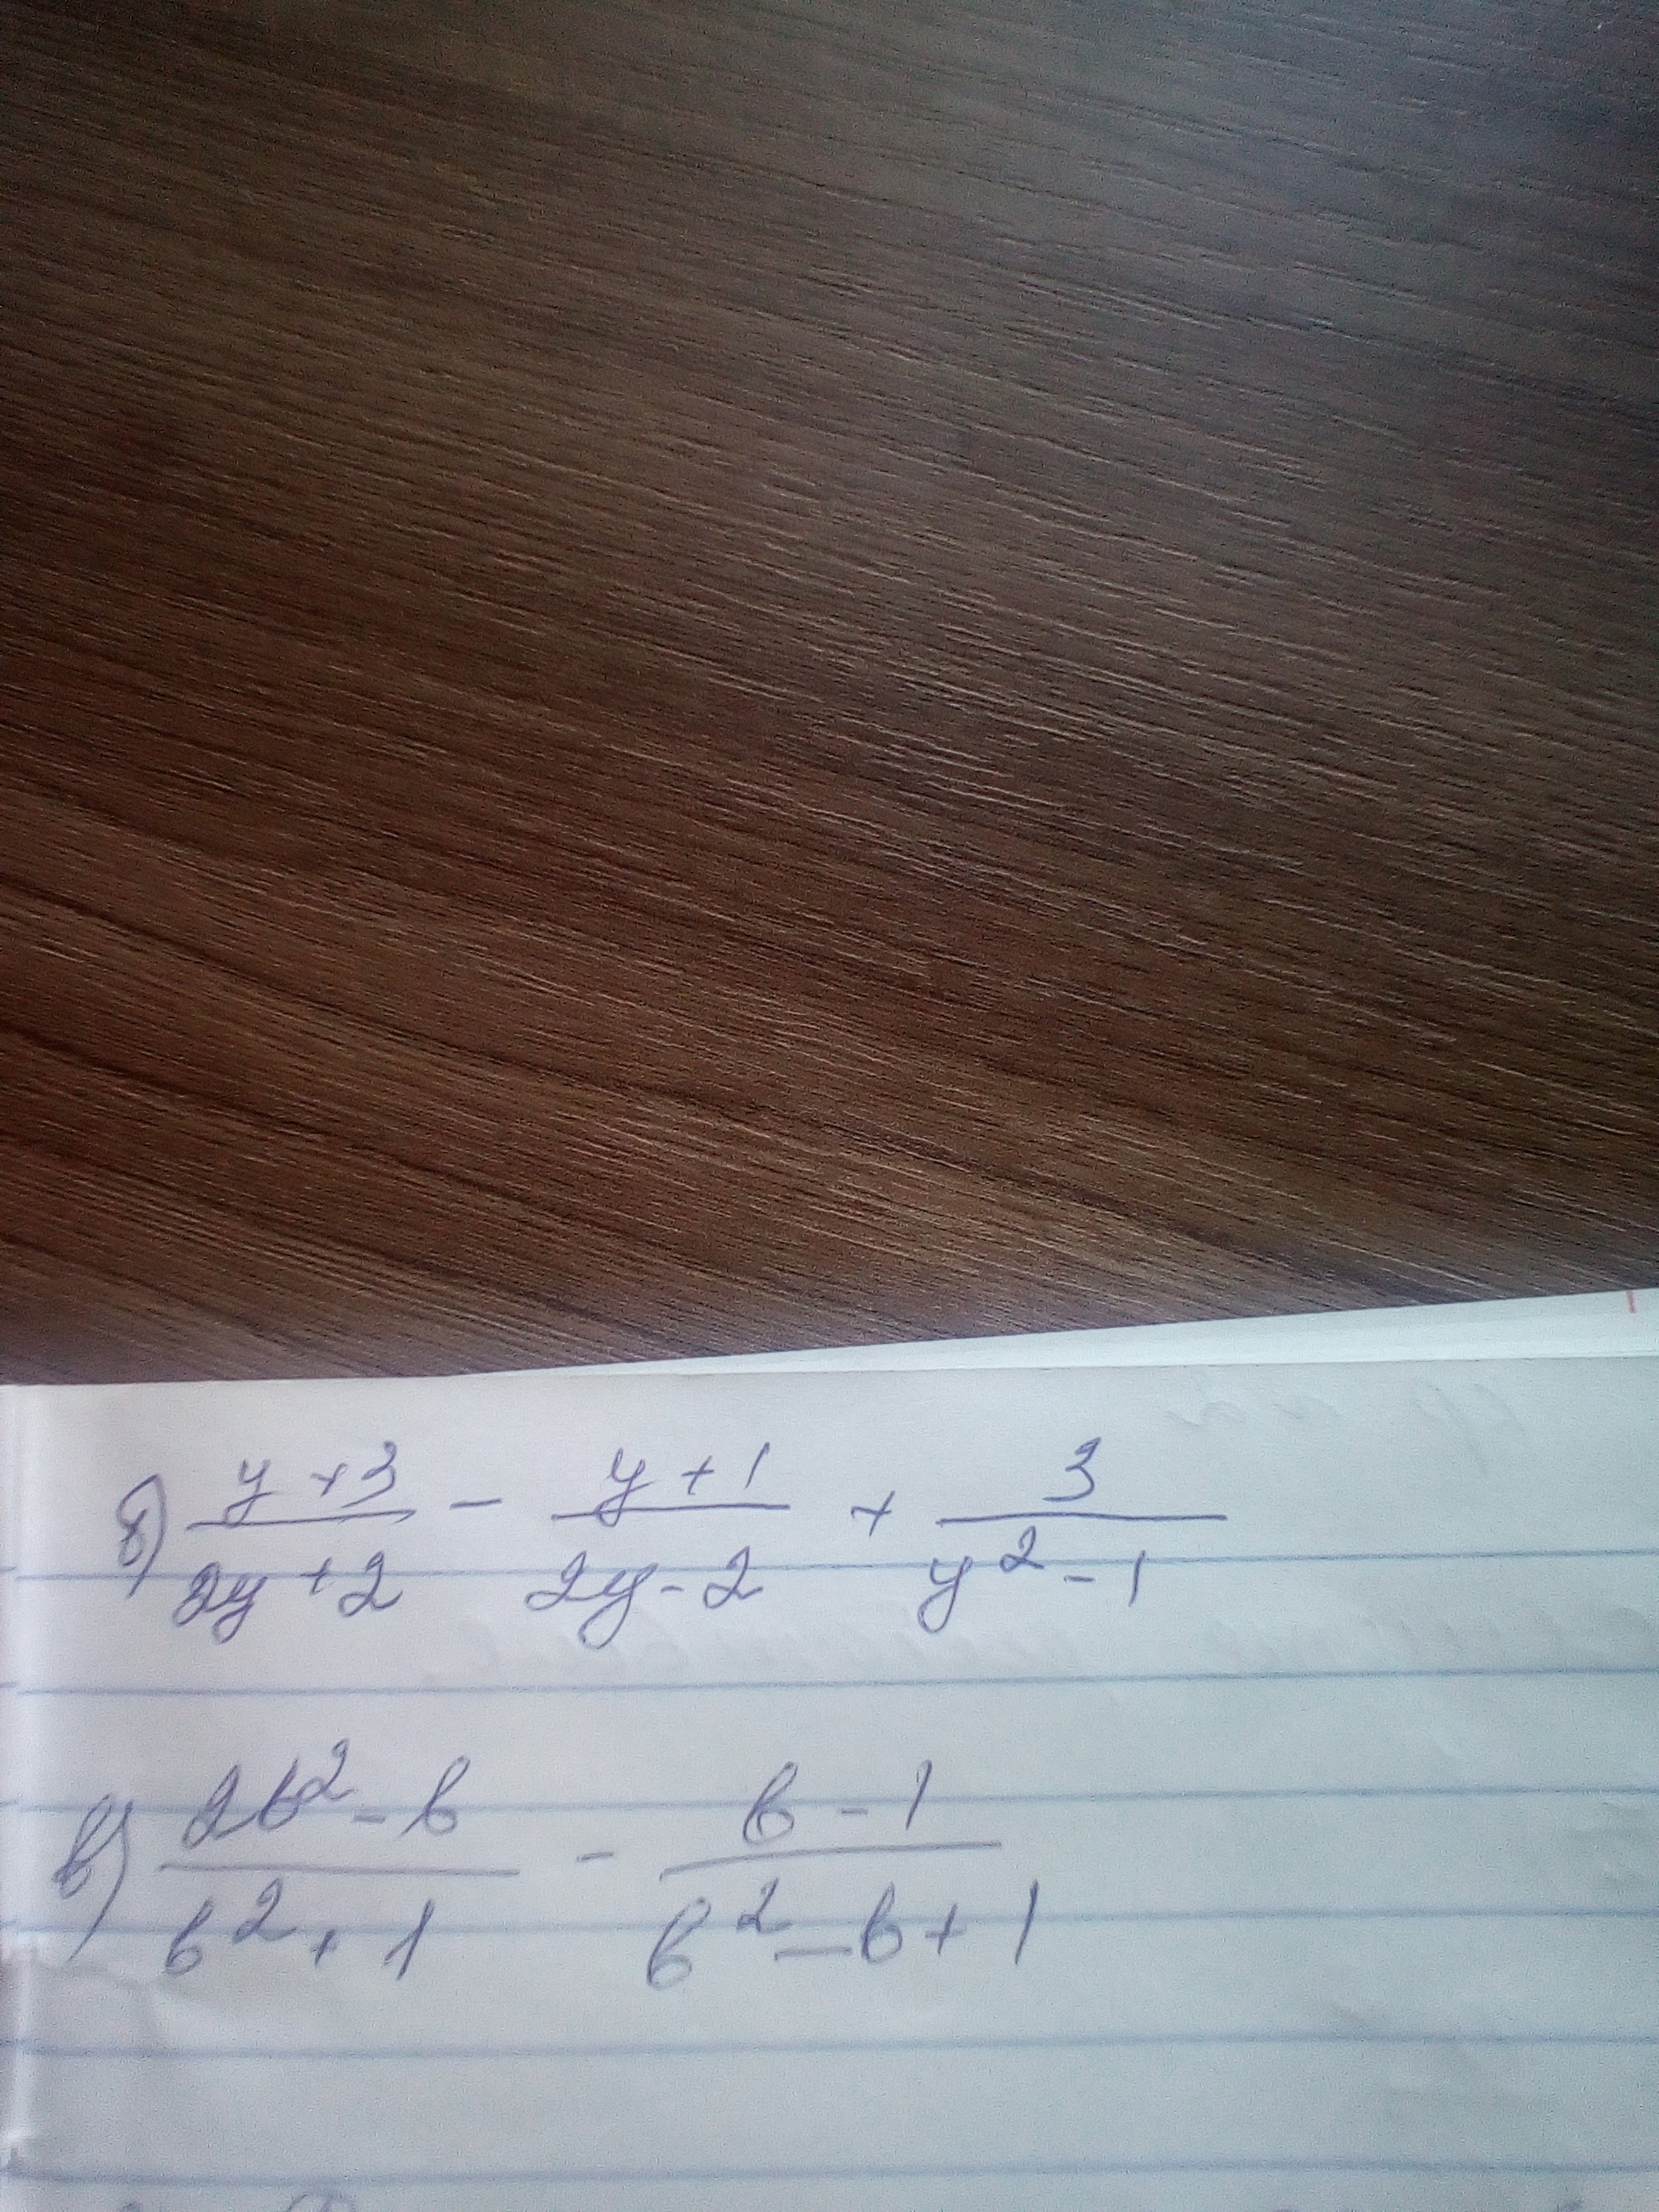 б) (y+3)/(2y+2) - (y+1)/(2y-2) + 3/(y²-1)
в) (2b²-b)/(b²+1) - (b-1)/(b²-b+1)